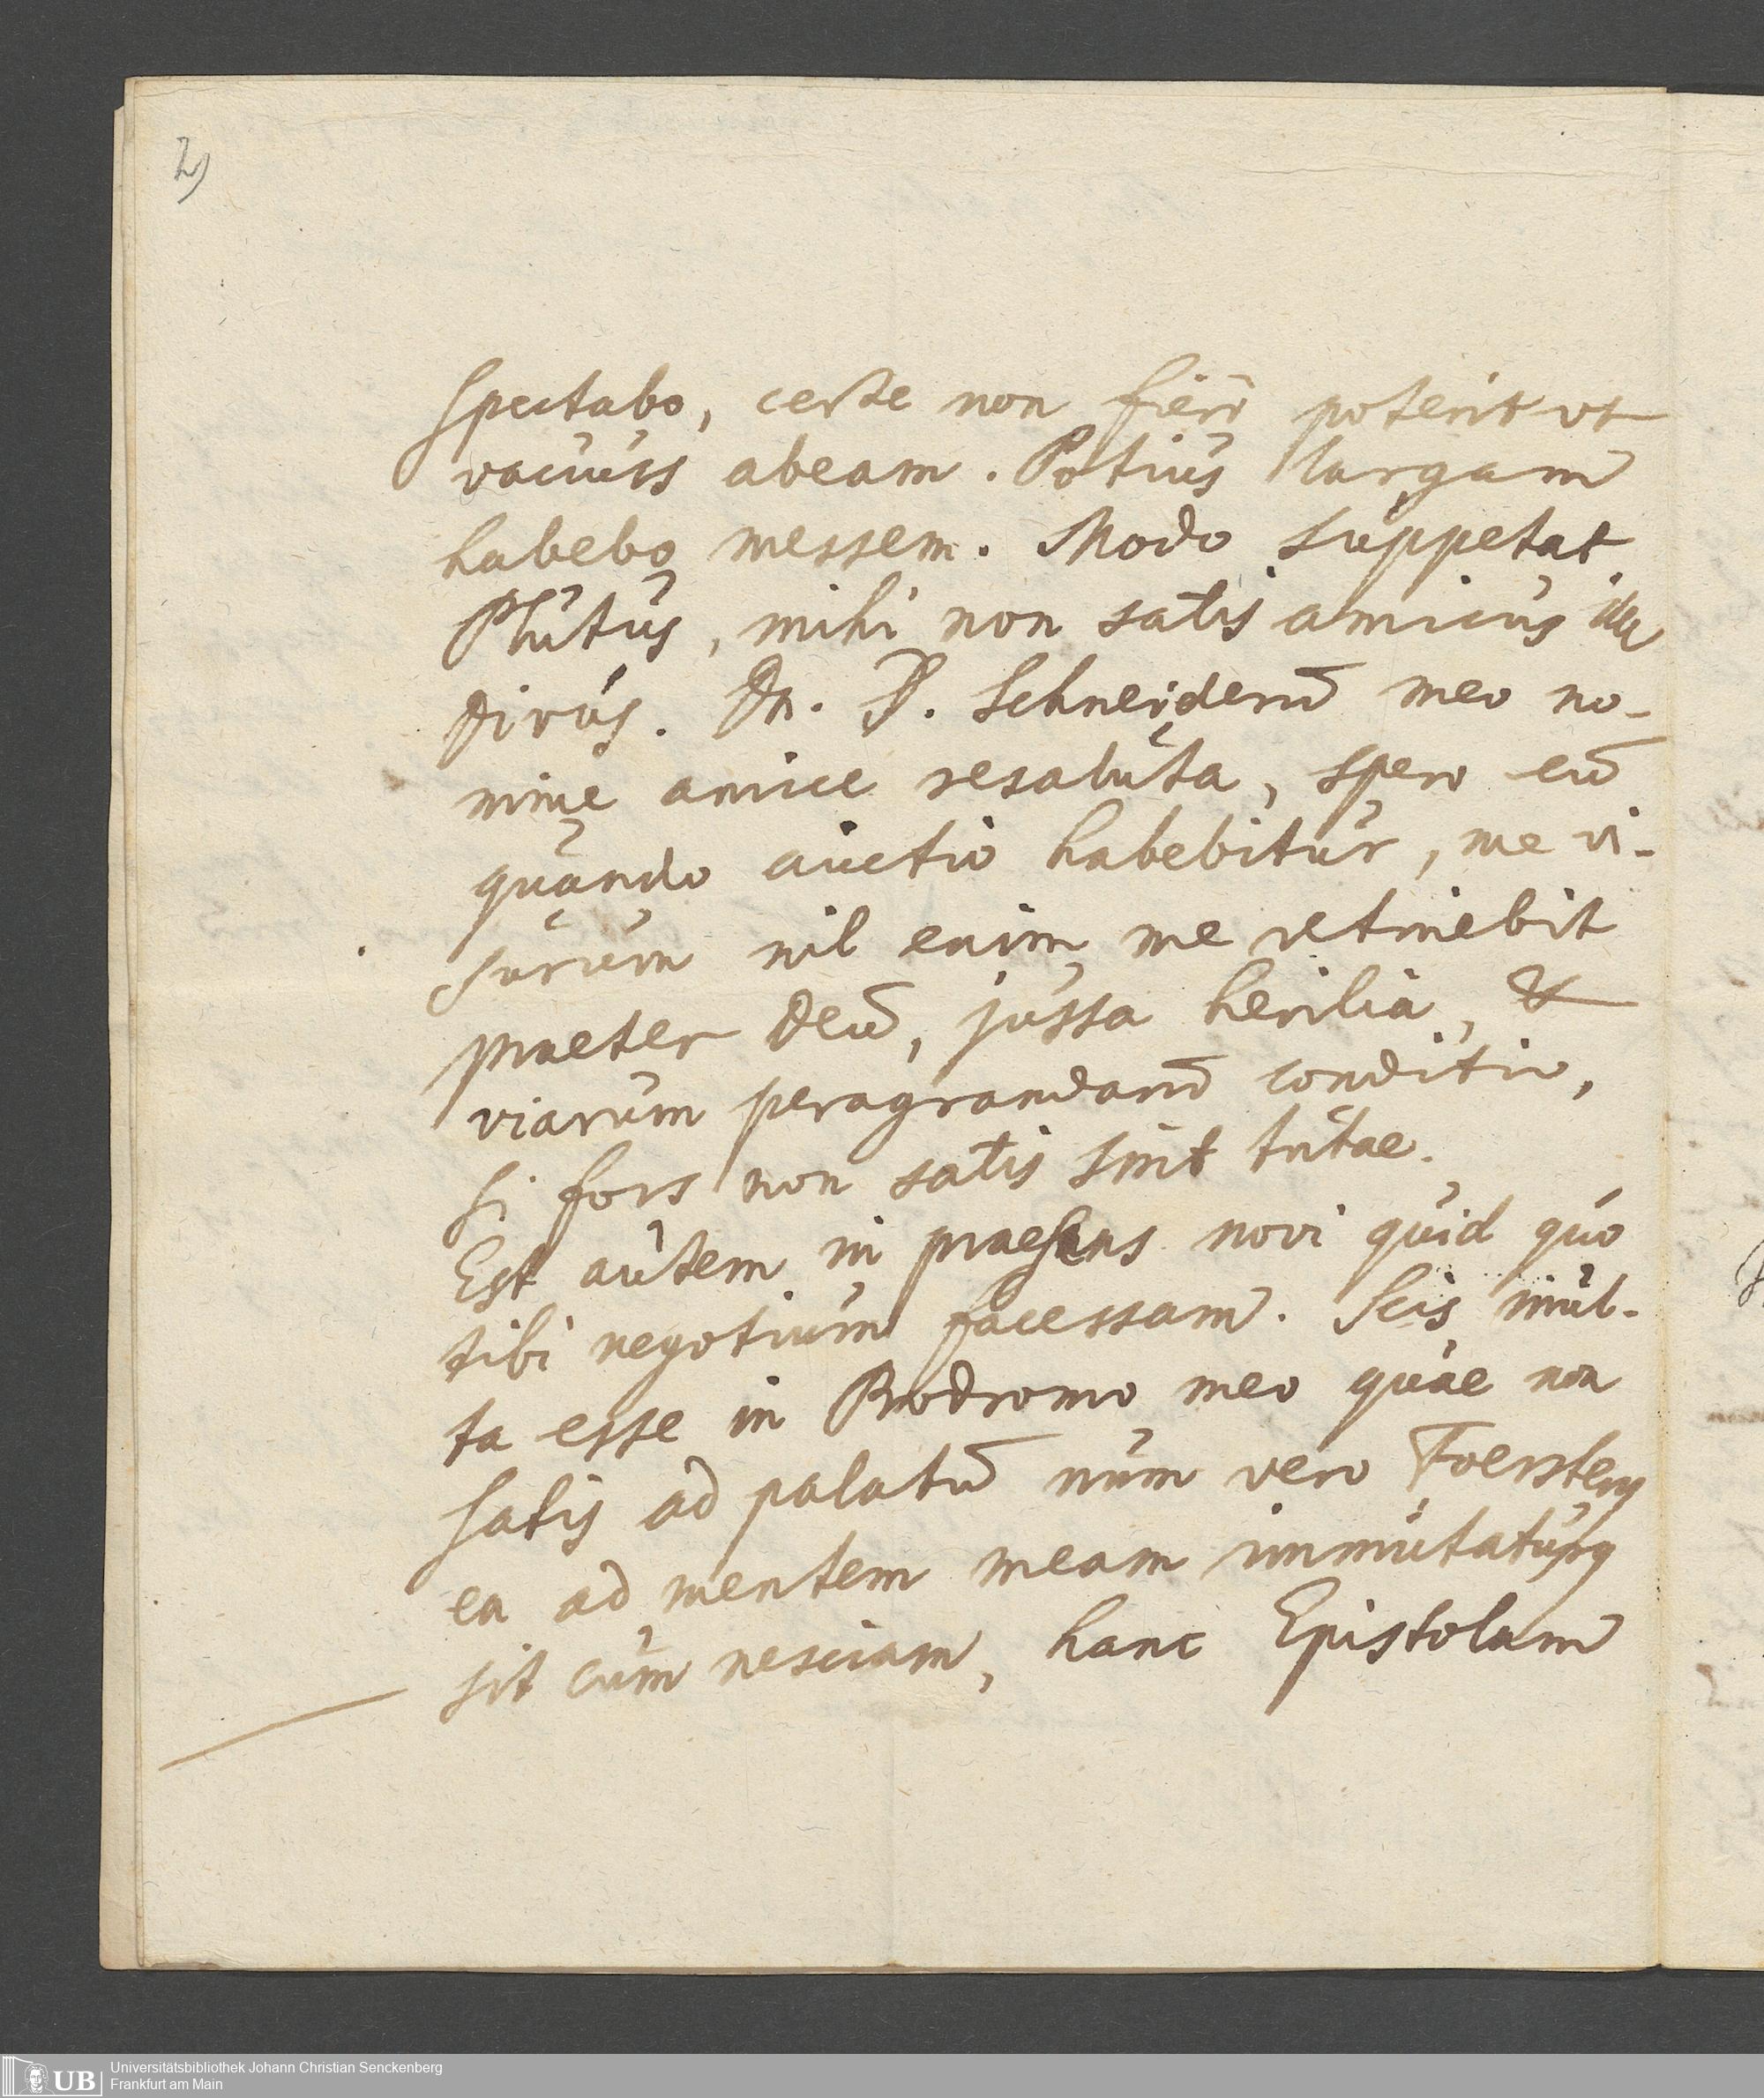 2)
spectabo, certe non fieri poterit ut
vacuus abeam. Potius largam
habebo messem. Modo suppetat
Plutus, mihi non satis amicus ille
divus. Dn. D. Schneiderū meo no-
mine amice resaluta, spero eū
quando auctio habebitur, me vi-
surum nil enim me retinebit
praeter Deū, jussa herilia, &
viarum peragrandarū conditio,
si fors non satis sint tutae.
Est autem in praesens novi quid quo
tibi negotium facessam. Scis mul-
ta esse in Prodromo meo quae non
satis ad palatū num vero Foersterg
ea ad mentem meam immutatusq
sit cum nesciam, hanc Epistolam
UB Universitätsbibliothek Johann Christian Senckenberg
Frankfurt am Main